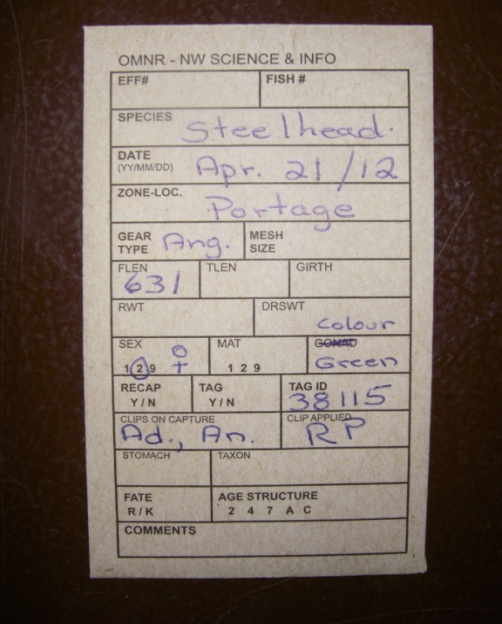 OMNR - NW SCIENCE & INFO
EFF# FISH #
SPECIES Steelhead.
DATE (YY/MM/DD) Apr. 21/12
ZONE-LOC. Portage
GEAR TYPE Ang. MESH SIZE
FLEN 631 TLEN GIRTH
RWT DRSWT
Colour
SEX MAT GONAD
1 2 9 ♀ 1 2 9 Green
RECAP TAG TAG ID
Y / N Y / N 38115
CLIPS ON CAPTURE CLIP APPLIED
Ad., An. RP
STOMACH TAXON
FATE AGE STRUCTURE
R / K 2 4 7 A C
COMMENTS